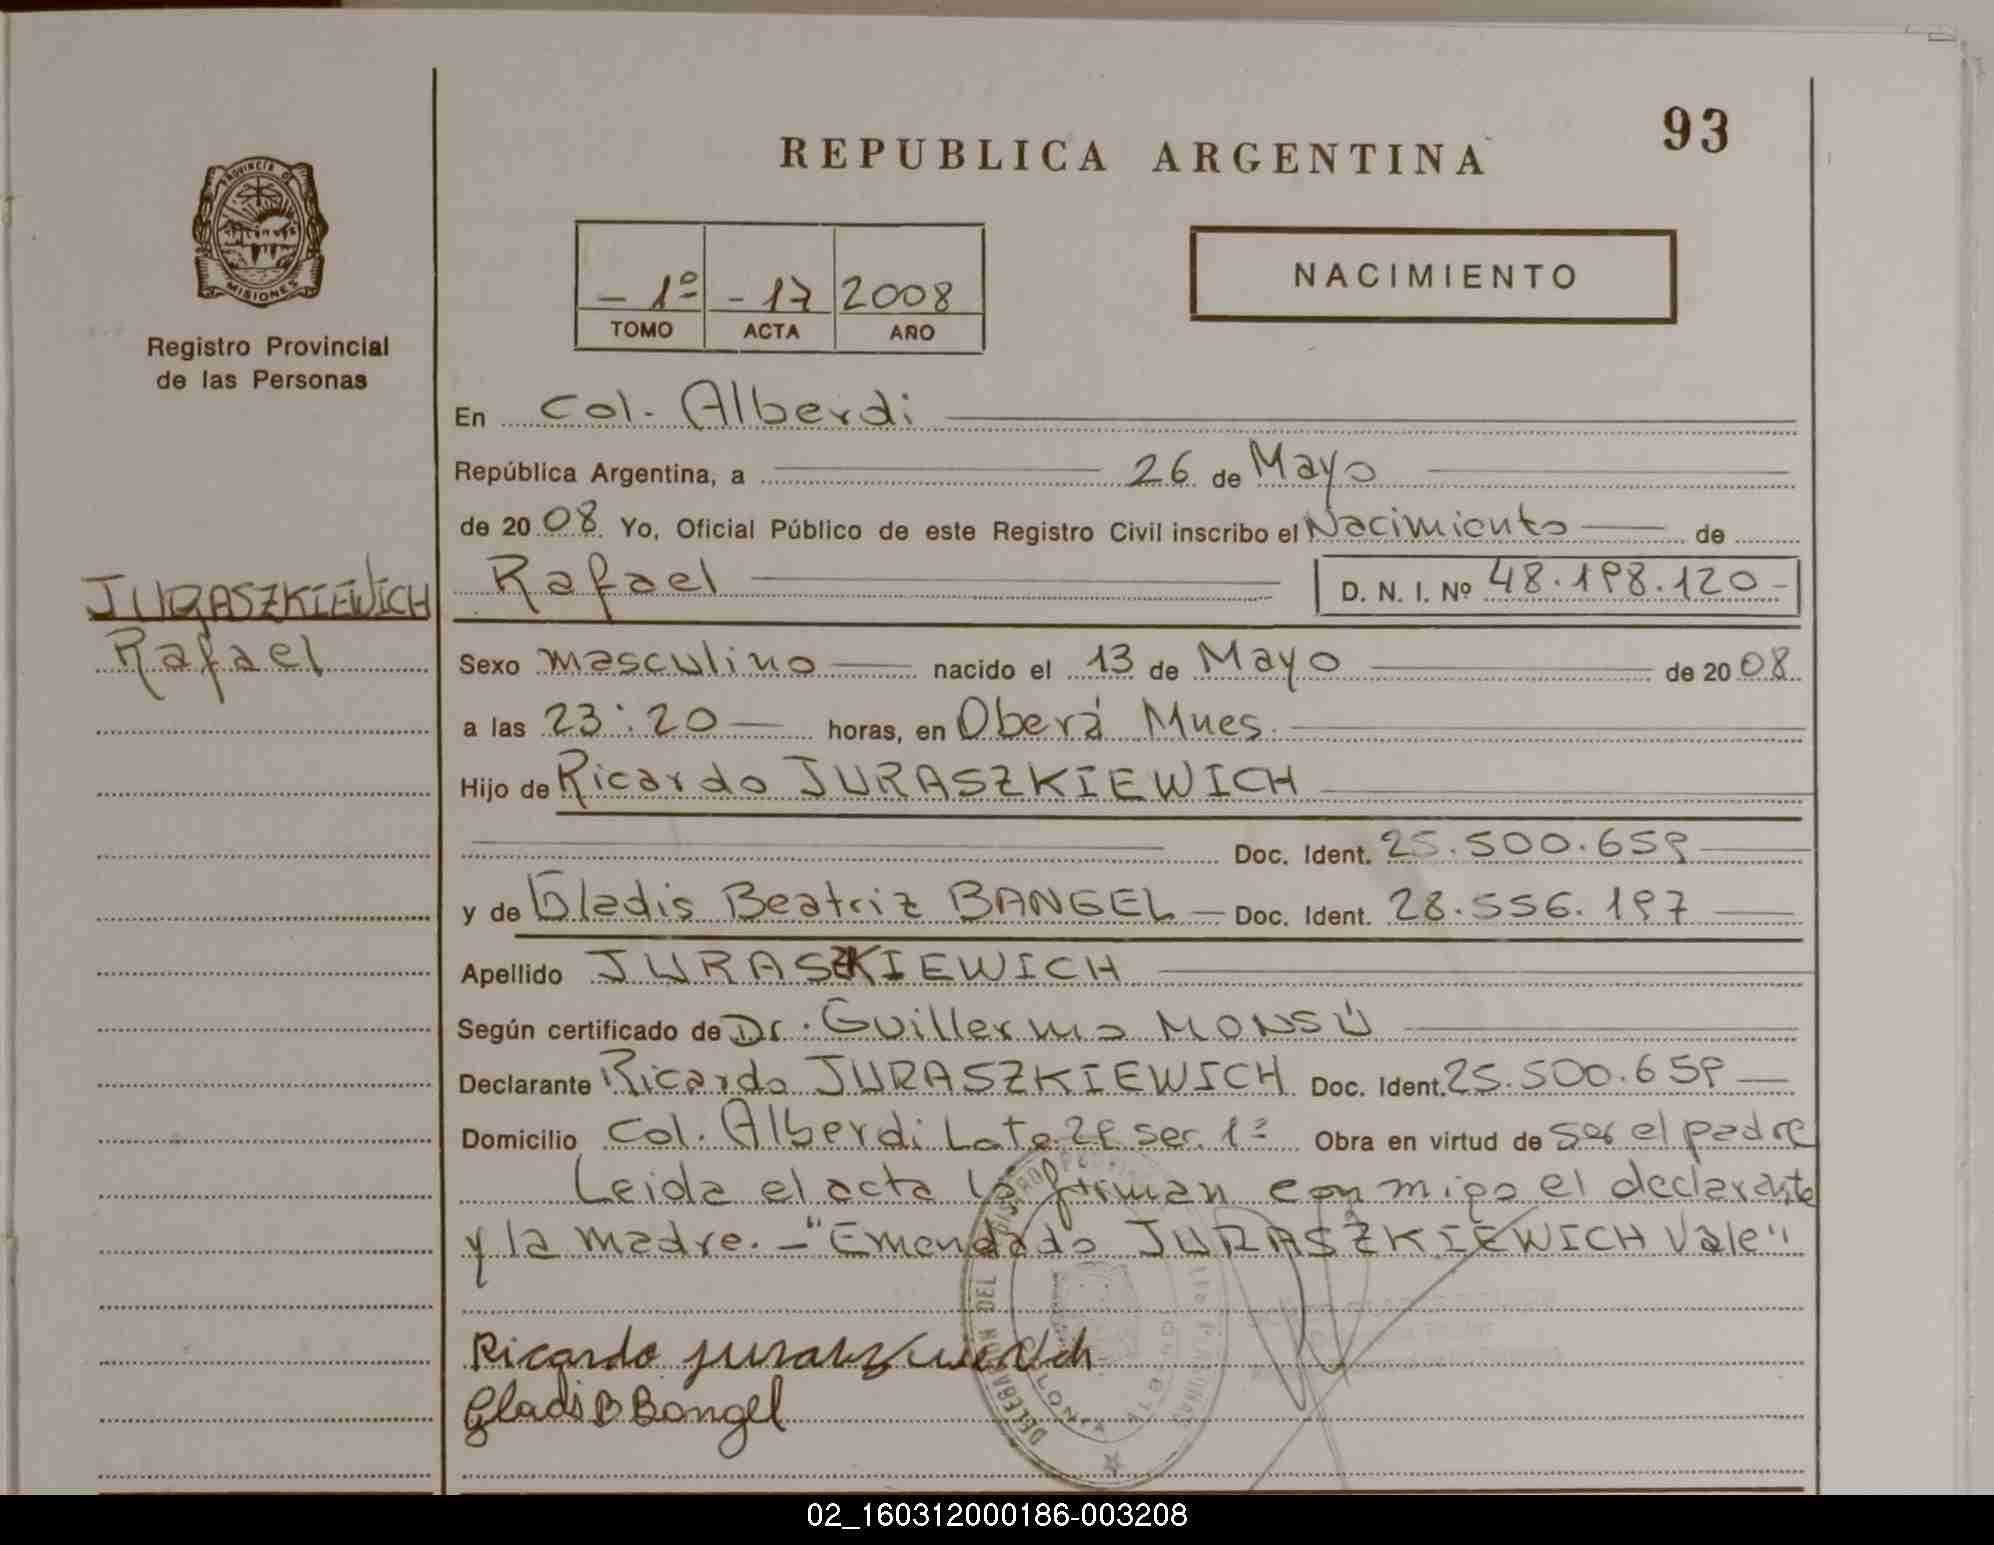 93
REPUBLICA ARGENTINA
PROVINCIA DE
MISIONES
Registro Provincial
de las Personas
- 1º - 17 2008
TOMO ACTA AÑO
NACIMIENTO
En Col. Alberdi
República Argentina, a 26 de Mayo
de 2008 Yo, Oficial Público de este Registro Civil inscribo el Nacimiento de
JURASZKIEWICH
Rafael
Rafael D. N. I. Nº 48.198.120-
Sexo masculino nacido el 13 de Mayo de 2008
a las 23:20 horas, en Oberá Mnes.
Hijo de Ricardo JURASZKIEWICH
Doc. Ident. 25.500.659
y de Gladis Beatriz BANGEL Doc. Ident. 28.556.197
Apellido JURASZKIEWICH
Según certificado de Dr. Guillermo MONSÚ
Declarante Ricardo JURASZKIEWICH Doc. Ident. 25.500.659
Domicilio Col. Alberdi Lote 29 sec. 1ª Obra en virtud de ser el padre
Leida el acta la firman conmigo el declarante
y la madre. - "Emendado JURASZKIEWICH Vale"
DELEGACION DEL REGISTRO PROVINCIAL
Ricardo Juraszkiewich
Gladis B Bangel
02_160312000186-003208